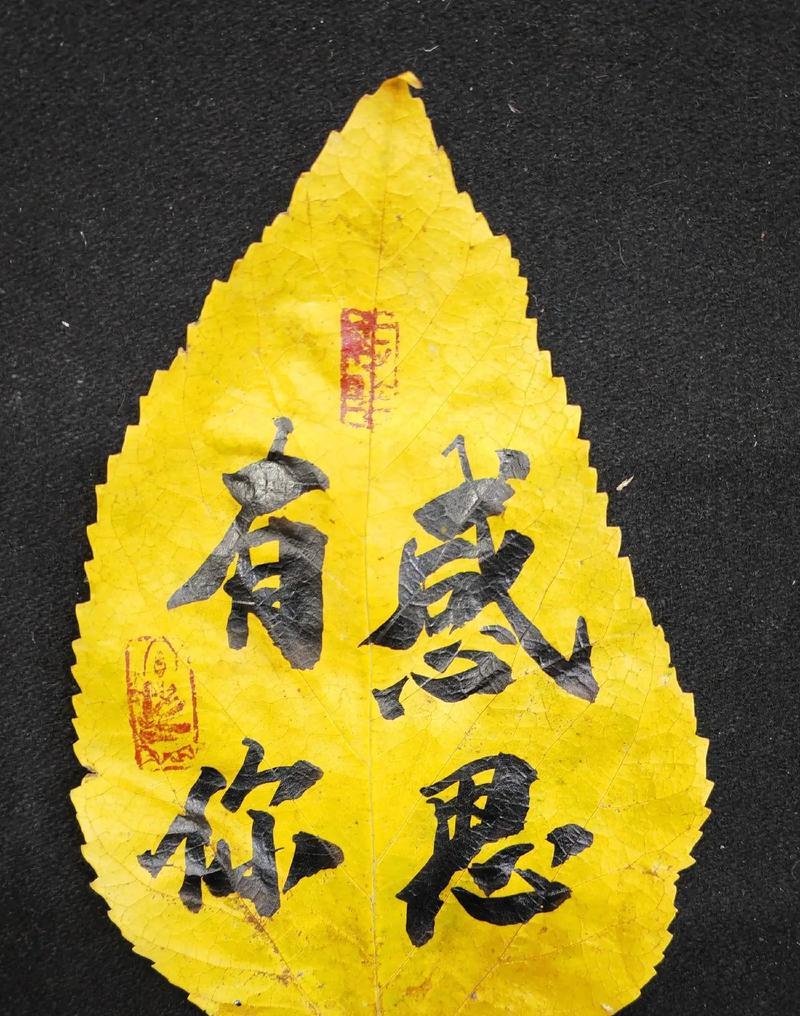 感恩
有你